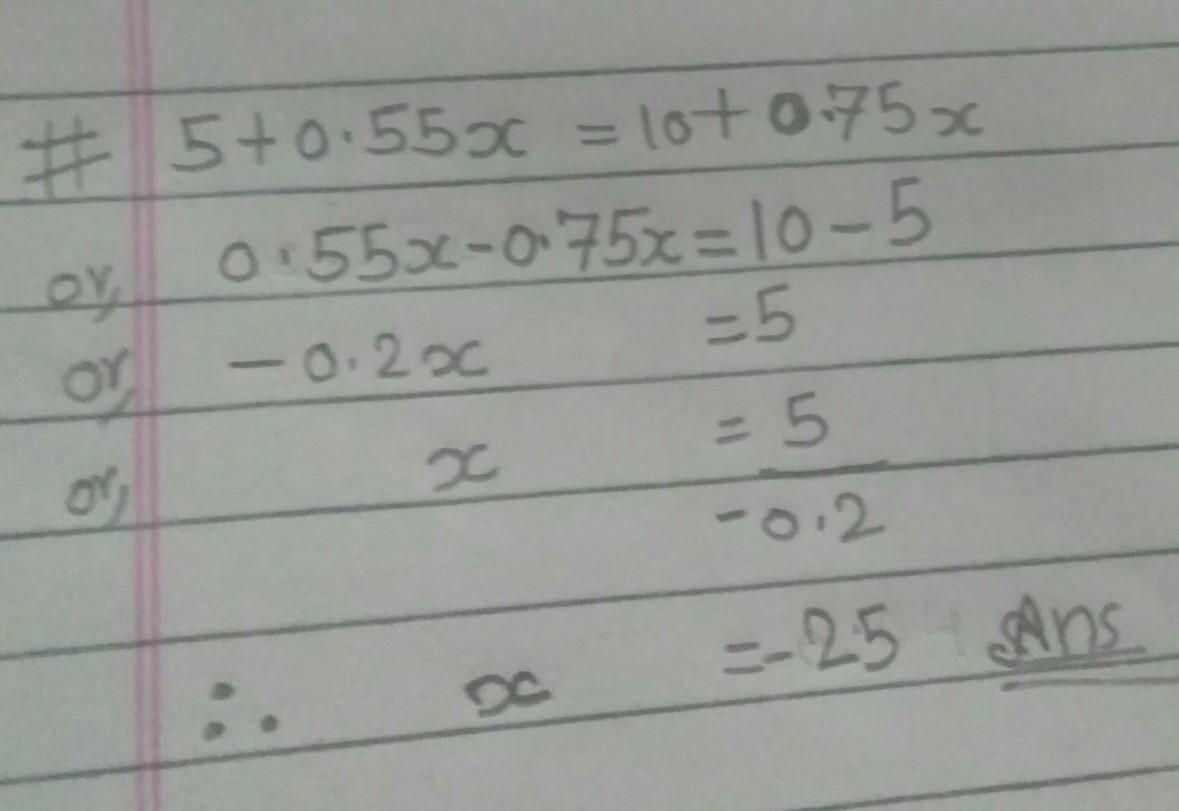 # 5+0.55x = 10+0.75x
or, 0.55x-0.75x=10-5
or, -0.2x =5
or, x = 5
-0.2
∴ x =-25 Ans